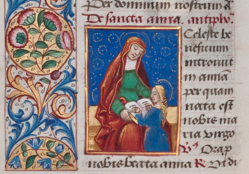 Per dominum nostrum a
De sancta anna. antipho.
Celeste be
neficium
introiuit
in annā
per quam
nata est
nobis ma
ria virgo
nobis beata anna